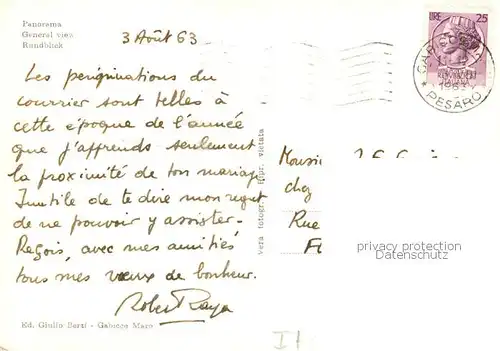 Panorama
General view
Rundblick
3 Août 63
Les pérégrinations du
courrier sont telles à
cette époque de l'année
que j'apprends seulement
la proximité de ton mariage
Inutile de te dire mon regret
de ne pouvoir y assister-
Reçois, avec mes amitiés
tous mes vœux de bonheur.
Ed. Giulio Berti - Gabicce Mare
Vera fotogr. ripr. vietata
LIRE 25
1963
PESARO
chez
Rue
privacy protection
AKPOOL.DE